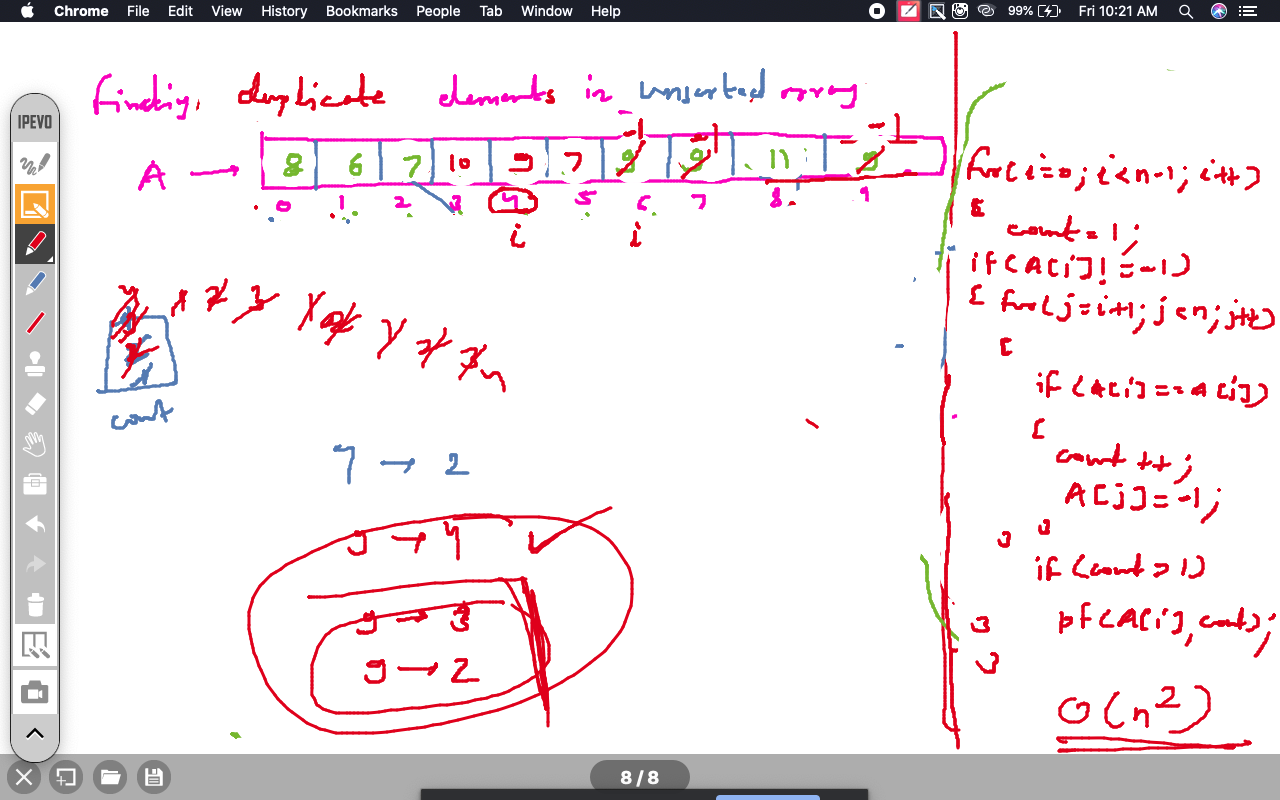 Chrome File Edit View History Bookmarks People Tab Window Help 99% Fri 10:21 AM
IPEVO
finding duplicate elements in unsorted array
-1 -1 -1
A → 8 6 7 10 9 7 9 9 11 9
0 1 2 3 4 5 6 7 8 9
i i
1 2 3 1 2 1 2 3 4
count
7 → 2
9 → 4
9 → 3
9 → 2
for(i=0; i<n-1; i++)
{
count = 1;
if(A[i]!=-1)
{ for(j=i+1; j<n; j++)
{
if(A[i]==A[j])
{
count ++;
A[j]=-1;
} }
if(count>1)
} pf(A[i], count);
}
O(n²)
8 / 8